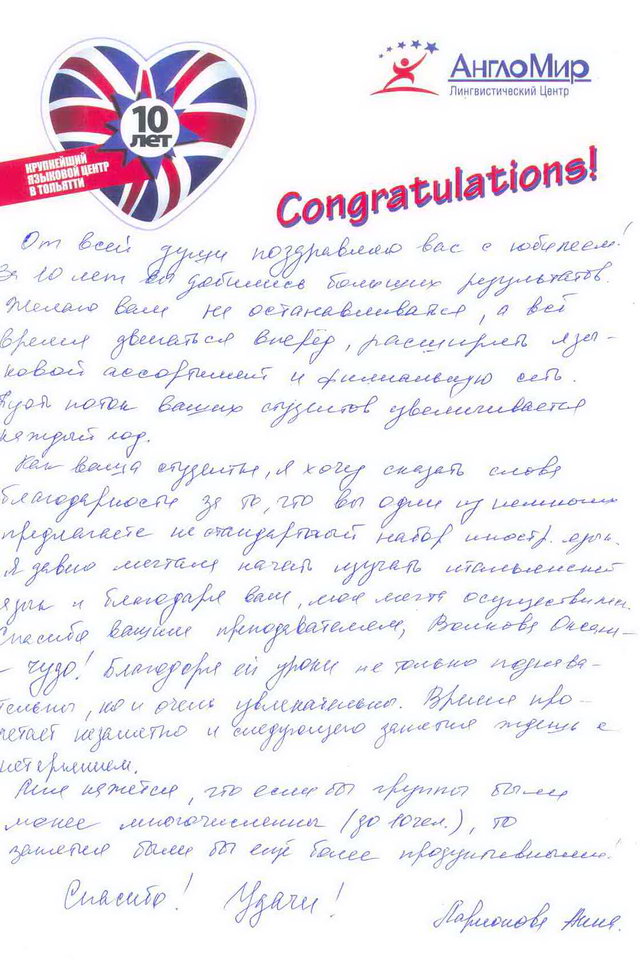 10
лет
КРУПНЕЙШИЙ
ЯЗЫКОВОЙ ЦЕНТР
В ТОЛЬЯТТИ
АнглоМир
Лингвистический Центр
Congratulations!
От всей души поздравляю вас с юбилеем!
За 10 лет вы добились больших результатов.
Желаю вам не останавливаться, а всё
время двигаться вперёд, расширять язы-
ковой ассортимент и филиальную сеть.
Пусть поток ваших студентов увеличивается
каждый год.
Как ваша студентка, я хочу сказать слова
благодарности за то, что вы одни из немногих
предлагаете нестандартный набор иностр. язык.
Я давно мечтала начать изучать итальянский
язык и благодаря вам, моя мечта осуществилась.
Спасибо вашим преподавателям, Волкова Оксана
- чудо! Благодаря ей уроки не только познава-
тельны, но и очень увлекательны. Время про-
летает незаметно и следующего занятия ждешь с
нетерпением.
Мне кажется, что если бы группы были
менее многочисленны (до 10 чел.), то
занятия были бы ещё более продуктивными!
Спасибо! Удачи!
Ларионова Анна.